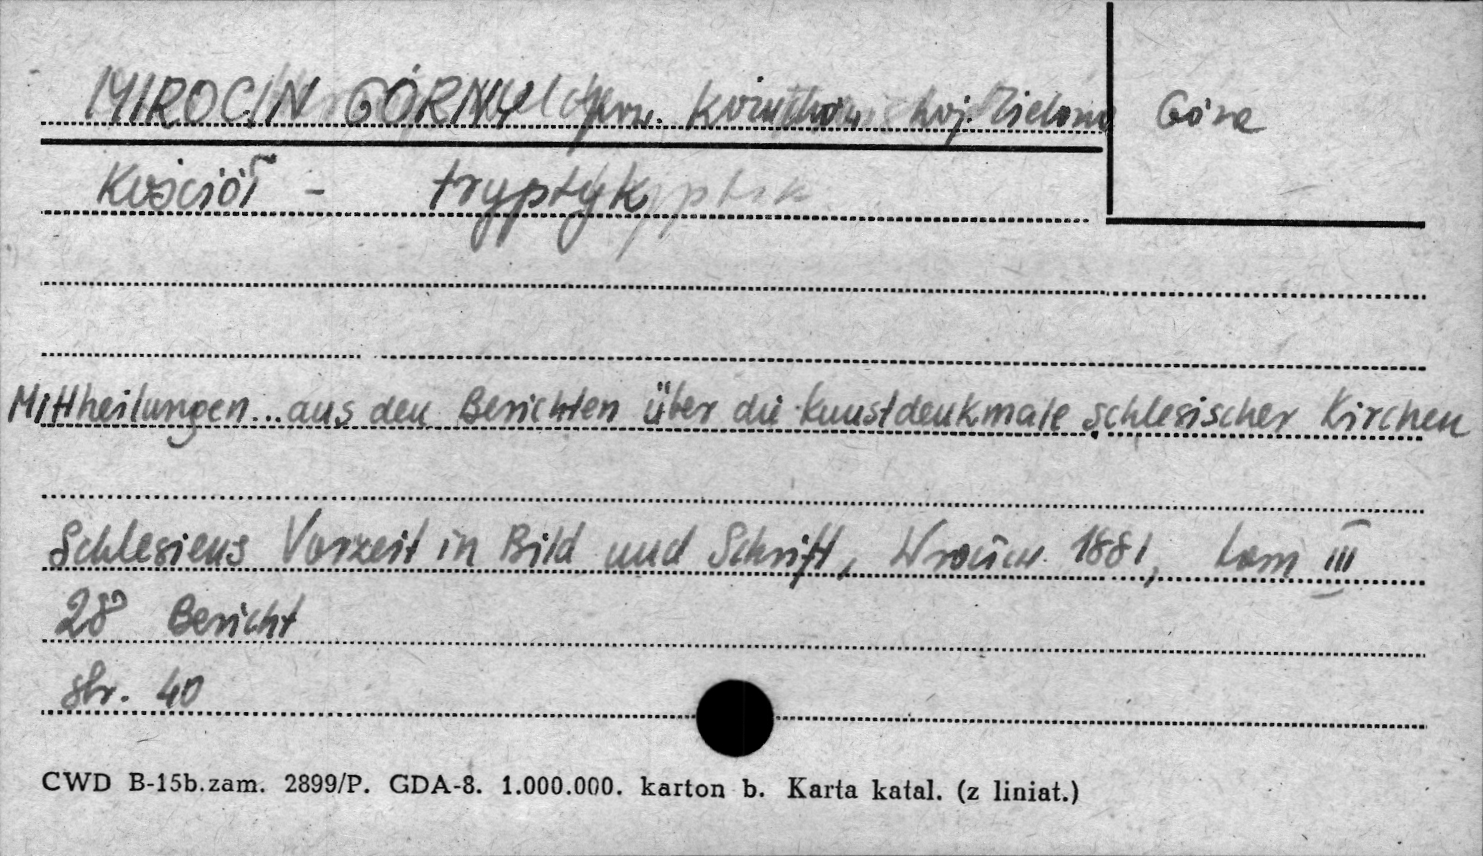 MIROCIN GÓRNY pow. Kożuchów woj. Zielona Góra
Kościół - tryptyk
Mittheilungen... aus den Berichten über die Kunstdenkmale schlesischer Kirchen
Schlesiens Vorzeit in Bild und Schrift, Wrocław 1881, tom III
28 Bericht
str. 40
CWD B-15b.zam. 2899/P. GDA-8. 1.000.000. karton b. Karta katal. (z liniat.)